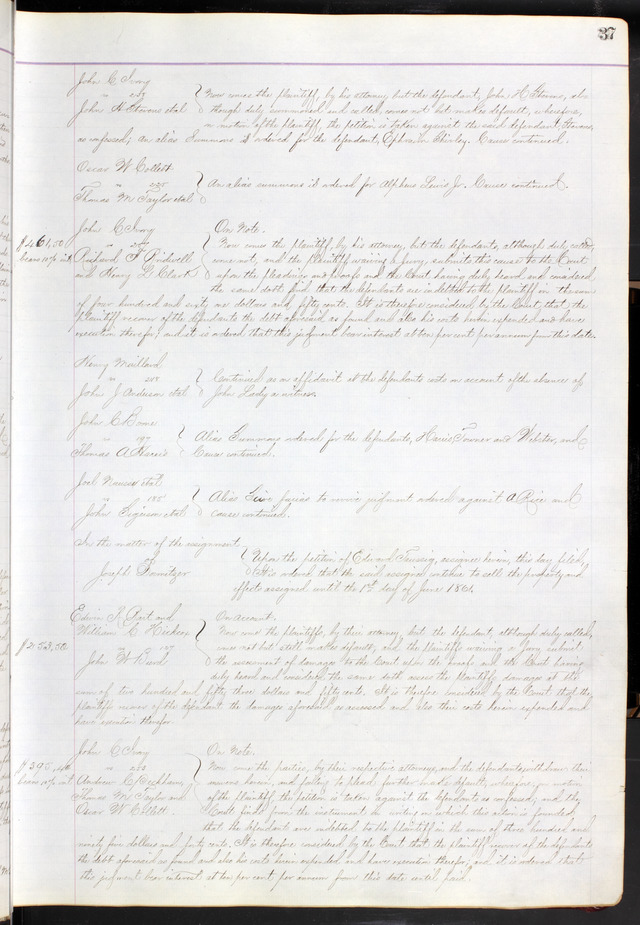 37
John C Ivory
" 
John H Stevens etal
Now comes the plaintiff, by his attorney, but the defendant, John H Stevens, al
though duly summoned and called, comes not but makes default, wherefore,
on motion of the plaintiff, the petition is taken against the said defendant, Stevens,
as confessed; An alias Summons is ordered for the defendant, Ephraim Shirley. Cause continued.
Oscar W Collett
"
Thomas M Taylor etal
An alias summons is ordered for Alpheus Lewis Jr. Cause continued.
John C Ivory
"
and Henry L Clark
$461,50
bears 10% int
On Note.
Now comes the plaintiff, by his attorney, but the defendants, although duly called,
come not, and the plaintiff waiving a jury, submits this cause to the Court
upon the pleadings and proofs and the Court having duly heard and considered
the same doth find that the defendants are indebted to the plaintiff in the sum
of four hundred and sixty one dollars and fifty cents. It is therefore considered by the Court, that the
plaintiff recover of the defendants the debt aforesaid as found and also his costs herein expended and have
execution therefor; and it is ordered that this judgment bear interest at ten per cent per annum from this date.
Henry Maillard
"
John J Anderson etal
Continued on affidavit at the defendants costs on account of the absence of
John Lody a witness.
John C Bone
" 197
Thomas A Harris
Alias Summons ordered for the defendants, Harris, Towner and Webster, and
Cause continued.
Joel
" 185
John Ferguson etal
Alias Scire facias to revive judgment ordered against A Rice and
cause continued.
In the matter of the assignment
Joseph
Upon the petition of Edward Taussig, assignee herein, this day filed,
It is ordered that the said assignee continue to sell the property and
effects assigned until the 1st day of June 1861.
Edwin A and
William C Hickox
" 187
John W
$253,50
On account.
Now come the plaintiffs, by their attorney, but the defendant, although duly called,
comes not but still makes default, and the plaintiffs waiving a Jury submit
the assessment of damages to the Court upon the proofs, and the Court having
duly heard and considered the same doth assess the plaintiffs damages at the
sum of two hundred and fifty three dollars and fifty cents. It is therefore considered by the Court that the
plaintiffs recover of the defendant the damages aforesaid as assessed and also their costs herein expended and
have execution therefor.
John C Ivory
"
Andrew C
Thomas M Taylor and
Oscar W Collett.
$395,40
bears 10% int
On Note.
Now come the parties, by their respective attorneys, and the defendants withdraw their
answer herein, and failing to plead further make default, wherefore, on motion
of the plaintiff, the petition is taken against the defendants as confessed; and the
Court finds from the instrument in writing on which this action is founded,
that the defendants are indebted to the plaintiff in the sum of three hundred and
ninety five dollars and forty cents. It is therefore considered by the Court that the plaintiff recover of the defendants
the debt aforesaid as found and also his costs herein expended and have execution therefor; and it is ordered that
this judgment bear interest at ten per cent per annum from this date until paid.